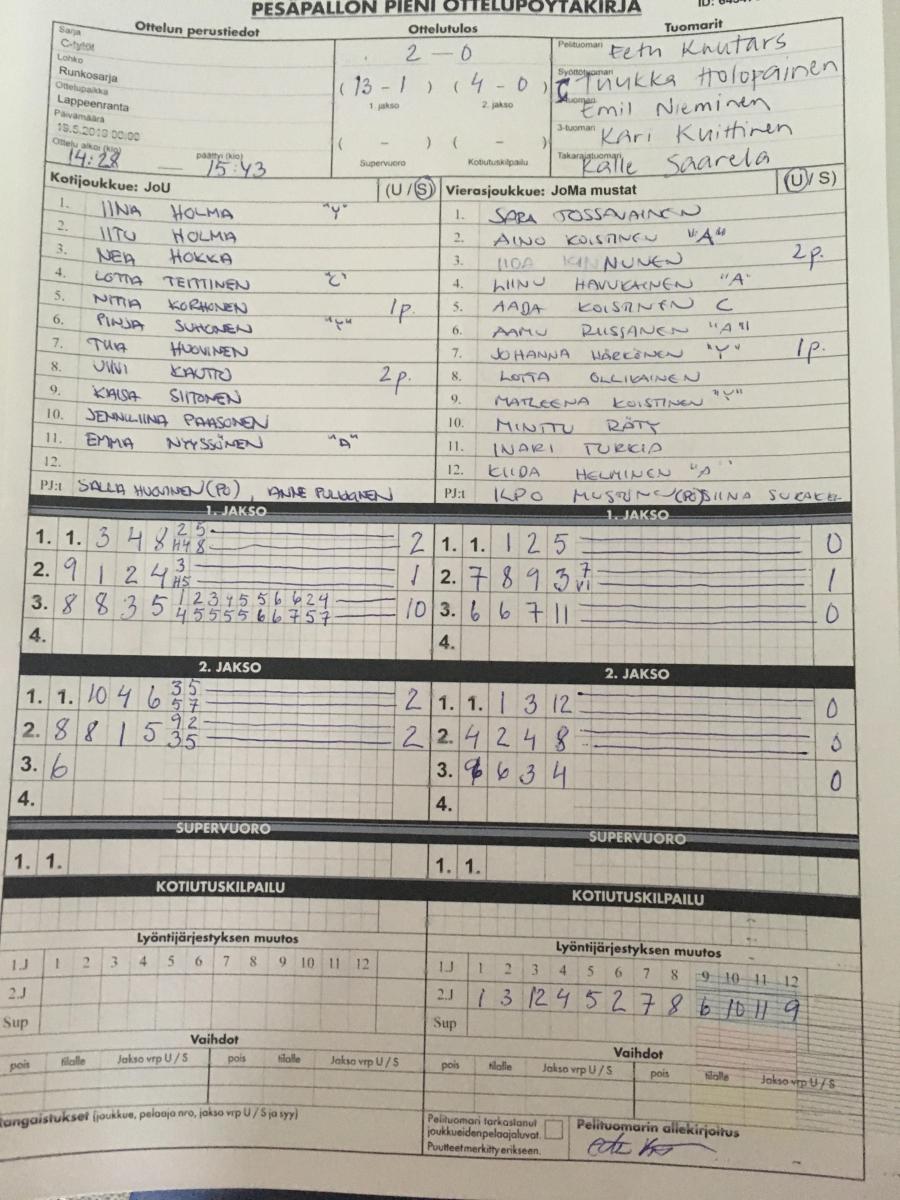 PESÄPALLON PIENI OTTELUPÖYTÄKIRJA
ID:
Ottelun perustiedot
Ottelutulos
Tuomarit
Sarja
C-tytöt
Lohko
Runkosarja
Ottelupaikka
Lappeenranta
Päivämäärä
00:00
Ottelu alkoi (klo)
14:28
päättyi (klo)
15:43
2 - 0
( 13 - 1 ) ( 4 - 0 )
1. jakso 2. jakso
( - ) ( - )
Supervuoro Kotiutuskilpailu
Pelituomari Eetu Knutars
Syöttötuomari Tuukka Holopainen
Emil Nieminen
3-tuomari Kari Kuittinen
Takarajatuomari Kalle Saarela
Kotijoukkue: JoU (U / S)
1. IINA HOLMA "Y"
2. IITU HOLMA
3. NEA HOKKA
4. LOTTA TEITTINEN "C"
5. KORHONEN 1p.
6. PINJA SUHONEN "Y"
7. TUIA HUOVINEN
8. VIIVI KAUTTO 2p.
9. KAISA SIITONEN
10. JENNILIINA PAASONEN
11. EMMA NYYSSÖNEN "A"
12.
PJ:t SALLA HUOVINEN (PÖ), ANNE
Vierasjoukkue: JoMa mustat (U / S)
1. SARA TOSSAVAINEN
2. AINO KOISTINEN "A"
3. IIDA KINNUNEN 2p.
4. LIINU HAVUKAINEN "A"
5. AADA KOISTINEN C
6. AAMU RISSANEN "A"
7. JOHANNA HÄRKÖNEN "Y" 1p.
8. LOTTA OLLIKAINEN
9. MATLEENA KOISTINEN "Y"
10. MINTTU RÄTY
11. INARI TURKIA
12. KIIDA HELMINEN "A"
PJ:t ILPO MUSTONEN (PÖ) SIINA
1. JAKSO
1. 1. 3 4 8 2 5 2
H4 8
2. 9 1 2 4 3 1
H5
3. 8 8 3 5 1 2 3 4 5 5 6 6 2 4 10
4 5 5 5 5 6 6 7 5 7
4.
1. JAKSO
1. 1. 1 2 5 0
2. 7 8 9 3 7 1
V1
3. 6 6 7 11 0
4.
2. JAKSO
1. 1. 10 4 6 3 5 2
5 7
2. 8 8 1 5 9 2 2
3 5
3. 6
4.
2. JAKSO
1. 1. 1 3 12 0
2. 4 2 4 8 0
3. 6 3 4 0
4.
SUPERVUORO
1. 1.
SUPERVUORO
1. 1.
KOTIUTUSKILPAILU
KOTIUTUSKILPAILU
Lyöntijärjestyksen muutos
1.J 1 2 3 4 5 6 7 8 9 10 11 12
2.J
Sup
Lyöntijärjestyksen muutos
1.J 1 2 3 4 5 6 7 8 9 10 11 12
2.J 1 3 12 4 5 2 7 8 6 10 11 9
Sup
Vaihdot
pois tilalle Jakso vrp U / S pois tilalle Jakso vrp U / S
Vaihdot
pois tilalle Jakso vrp U / S pois tilalle Jakso vrp U / S
angaistukset (joukkue, pelaaja nro, jakso vrp U / S ja syy)
Pelituomari tarkastanut
joukkueiden pelaajaluvat.
Puutteet merkitty erikseen.
Pelituomarin allekirjoitus